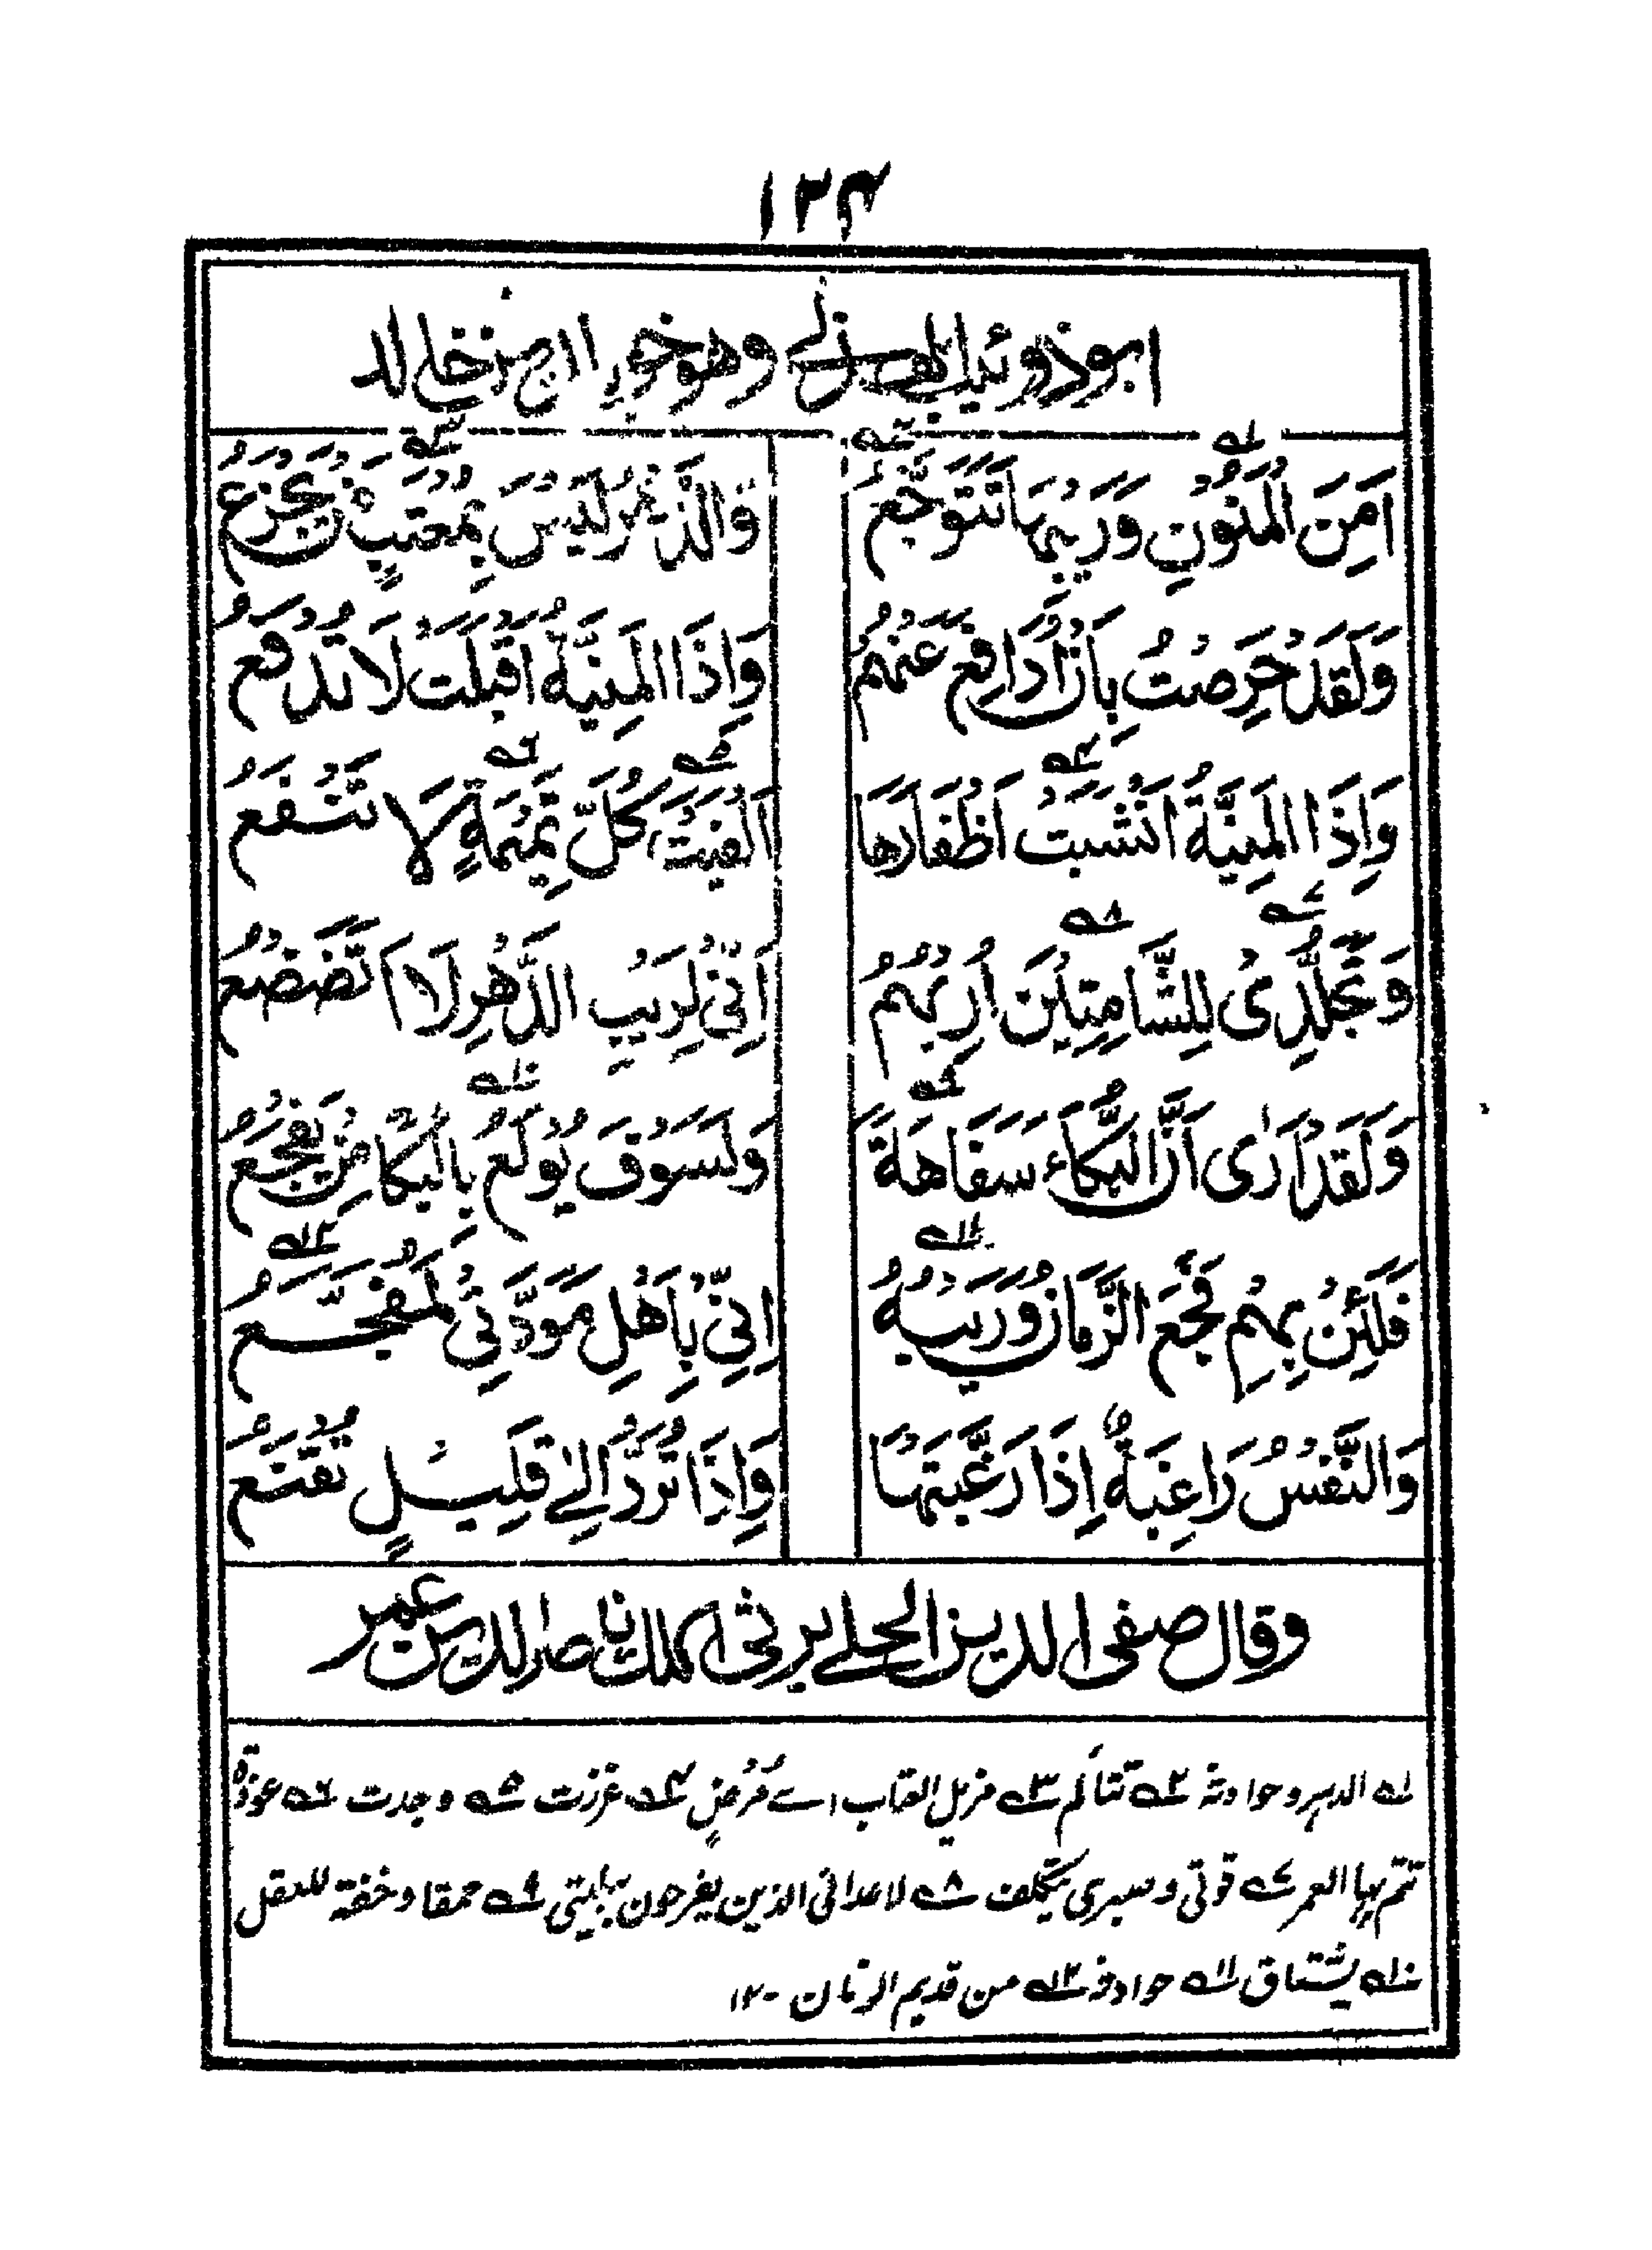 ١٣٤
ابو ذوئيب الهذلي وهو خويلد بن خالد
اَمِنَ الْمَنُوْنِ وَرَيْبِهَا تَتَوَجَّعُ وَالدَّهْرُ لَيْسَ بِمُعْتِبٍ مَنْ يَجْزَعُ
وَلَقَدْ حَرِصْتُ بِاَنْ اُدَافِعَ عَنْهُمُ وَاِذَا الْمَنِيَّةُ اَقْبَلَتْ لَا تُدْفَعُ
وَاِذَا الْمَنِيَّةُ اَنْشَبَتْ اَظْفَارَهَا اَلْفَيْتَ كُلَّ تَمِيْمَةٍ لَا تَنْفَعُ
وَتَجَلُّدِىْ لِلشَّامِتِيْنَ اُرِيْهُمُ اَنِّىْ لِرَيْبِ الدَّهْرِ لَا اَتَضَعْضَعُ
وَلَقَدْ اَرٰى اَنَّ الْبُكَاءَ سَفَاهَةً وَلَسَوْفَ يُوْلَعُ بِالْبُكَا مَنْ يَفْجَعُ
فَلَئِنْ بِهِمْ فَجَعَ الزَّمَانُ وَرَيْبُهُ اِنِّىْ بِاَهْلِ مَوَدَّتِىْ لَمُفَجَّعُ
وَالنَّفْسُ رَاغِبَةٌ اِذَا رَغَّبْتَهَا وَاِذَا تُرَدُّ اِلٰى قَلِيْلٍ تَقْنَعُ
وقال صفى الدين الحلى يرثى الملك ناصر الدين عمر
١ الدهر وحوادثه ٢ تتألم ٣ مزيل العتاب اے مُرْضٍ ٤ غرزت ٥ وجدت ٦ عوذة
تتم بها العمر ٧ قوتى وصبرى بتكلف ٨ لاعدائى الذين يفرحون ببليتى ٩ حمقا وخفة للعقل
١٠ يشتاق ١١ حوادثه ١٢ من قديم الزمان ١٢